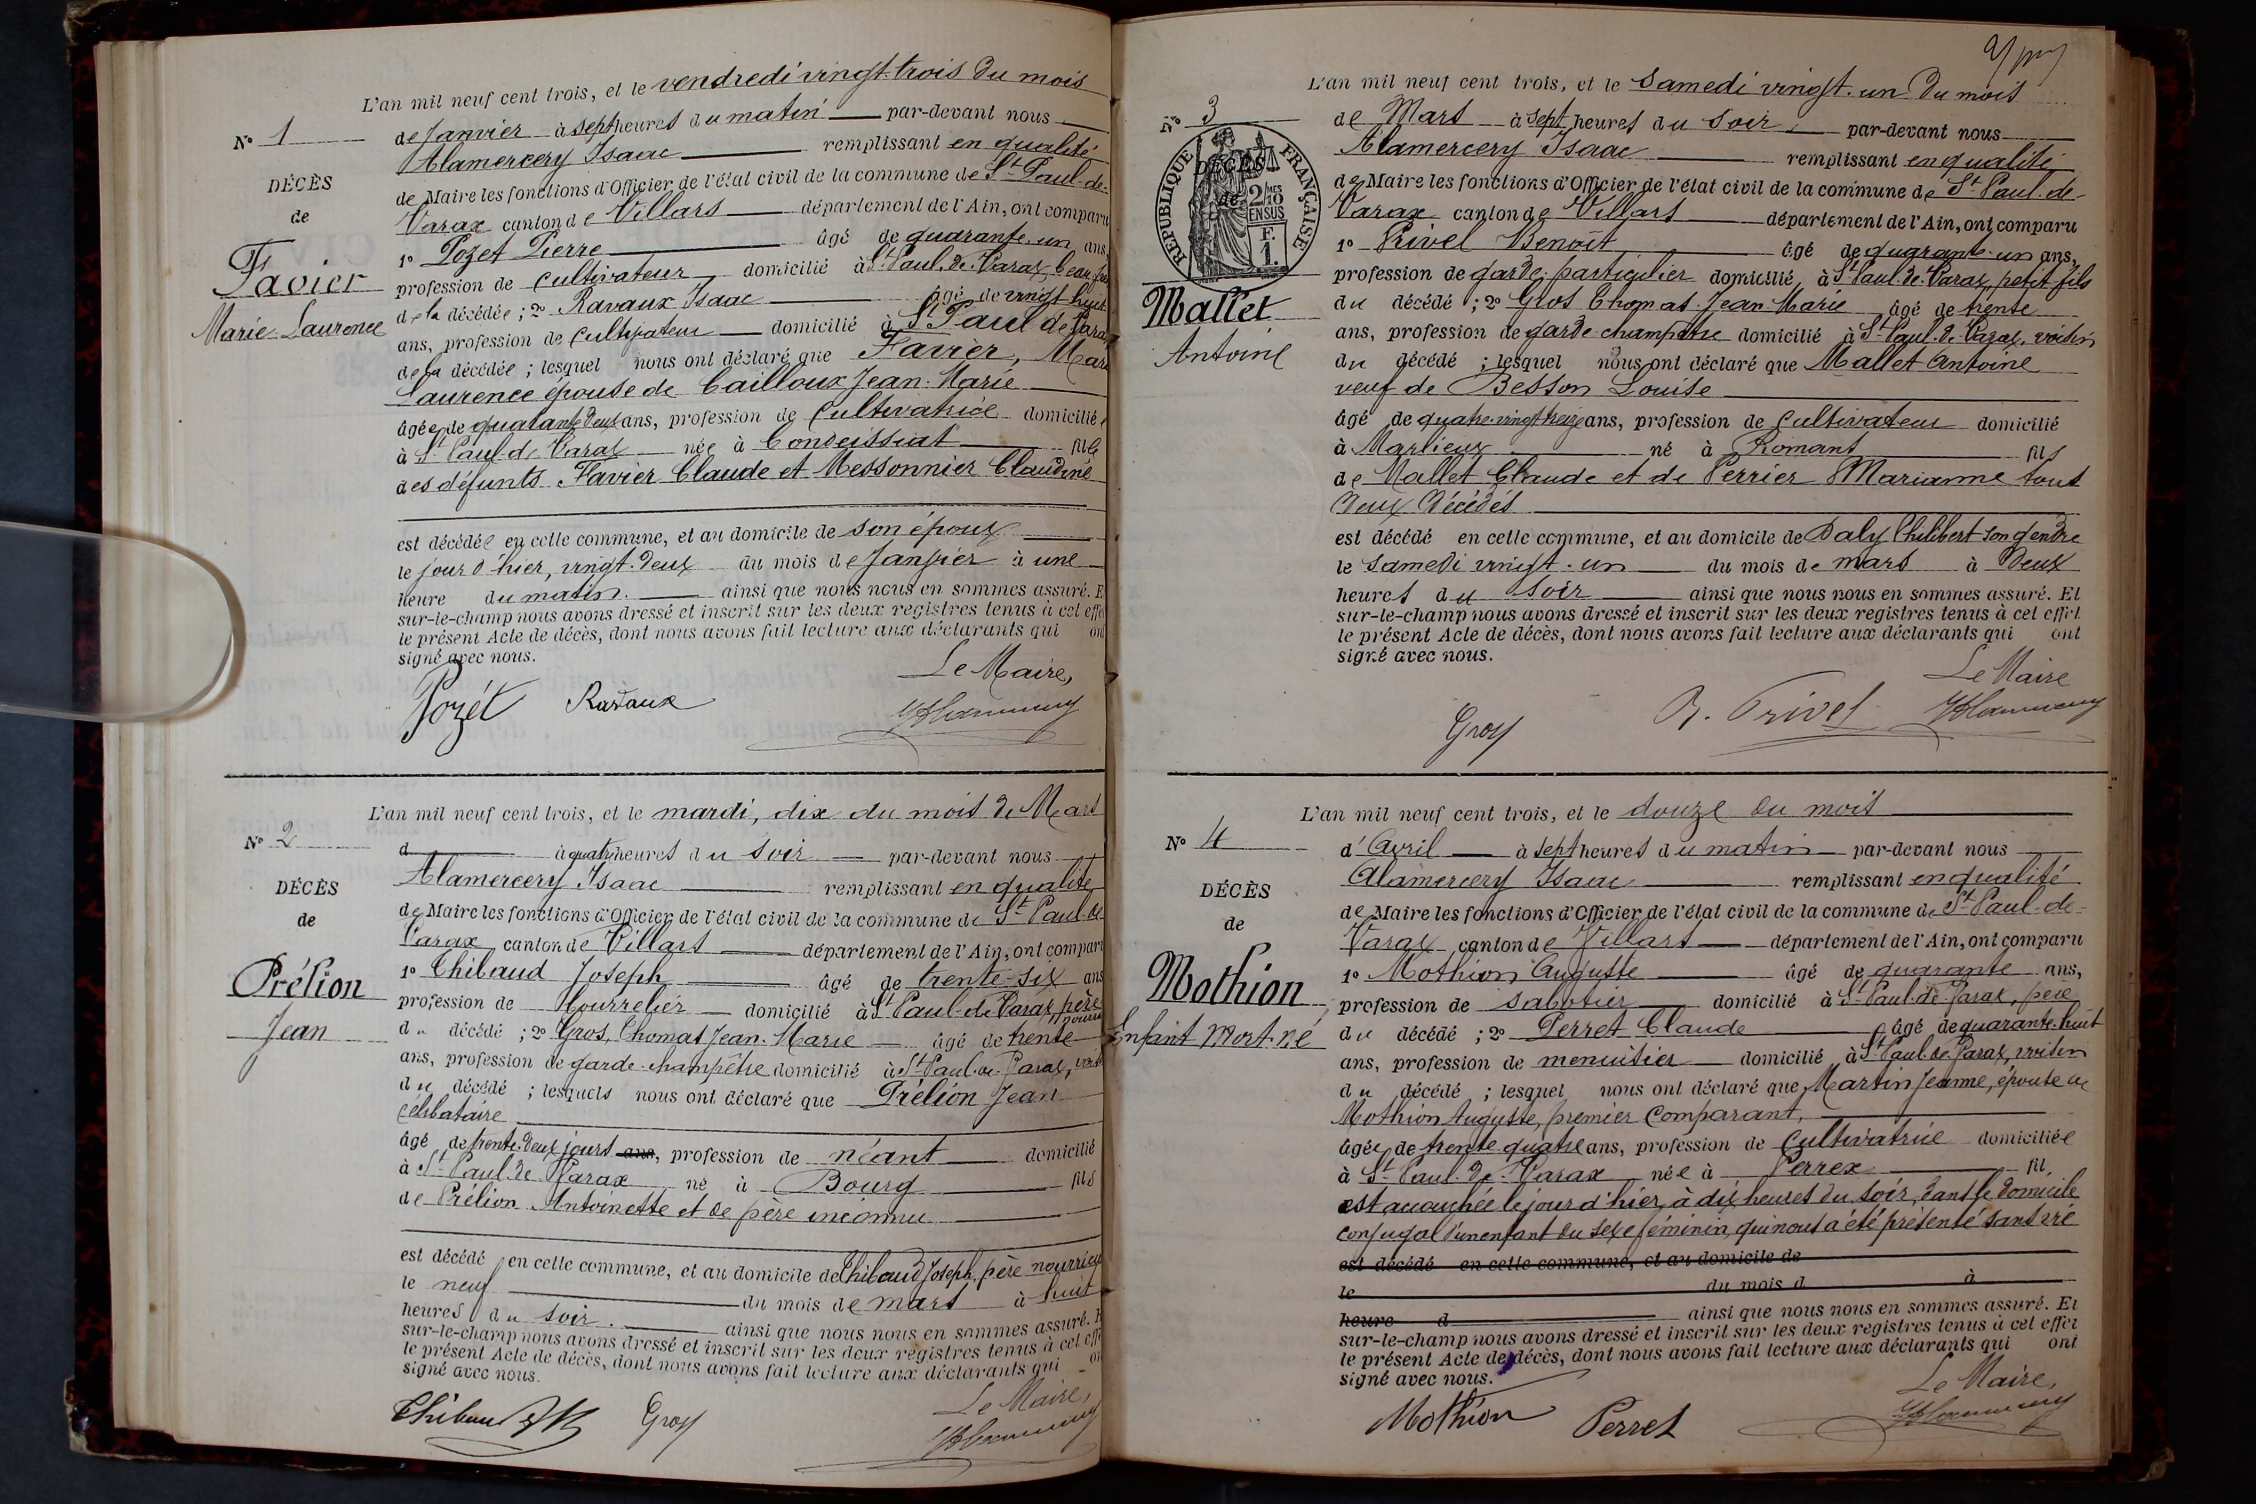 L'an mil neuf cent trois, et le vendredi vingt-trois du mois
N° 1
de Janvier à sept heures du matin par-devant nous
Alamercery Isaac remplissant en qualité
DÉCÈS
de Maire les fonctions d'Officier de l'état civil de la commune de St Paul-de-
de
Varax canton de Villars département de l'Ain, ont comparu
1° Pozet Pierre âgé de quarante-un ans,
Favier
profession de cultivateur domicilié à St Paul-de-Varax, beau-
Marie Laurence
de la décédée ; 2° Ravaux Isaac âgé de vingt huit
ans, profession de cultivateur domicilié à St Paul de Varax
de la décédée ; lesquel nous ont déclaré que Favier, Marie
Laurence épouse de Cailloux Jean-Marie
âgée de quarante deux ans, profession de cultivatrice domiciliée
à St Paul de Varax née à Condeissiat fille
des défunts Favier Claude et Messonnier Claudine
est décédée en cette commune, et au domicile de son époux
le jour d'hier, vingt-deux du mois de Janvier à une
heure du matin. ainsi que nous nous en sommes assuré. E
sur-le-champ nous avons dressé et inscrit sur les deux registres tenus à cet effe
le présent Acte de décès, dont nous avons fait lecture aux déclarants qui ont
signé avec nous.
Le Maire,
Pozet Ravaux
L'an mil neuf cent trois, et le mardi, dix du mois de Mars
N° 2
d à quatre heures du soir par-devant nous
Alamercery Isaac remplissant en qualité
DÉCÈS
de Maire les fonctions d'Officier de l'état civil de la commune de St Paul-de
de
Varax canton de Villars département de l'Ain, ont comparu
1° Thibaud Joseph âgé de trente-six ans
Prélion
profession de Bourrelier domicilié à St Paul-de-Varax, père
Jean
du décédé ; 2° Gros, Thomas Jean-Marie âgé de trente
ans, profession de garde-champêtre domicilié à St Paul-de-Varax,
du décédé ; lesquels nous ont déclaré que Prélion Jean
célibataire
âgé de trente-deux jours ans, profession de néant domicilié
à St Paul-de-Varax né à Bourg fils
de Prélion Antoinette et de père inconnu
est décédé en cette commune, et au domicile de Thibaud Joseph, père nourricier
le neuf du mois de mars à huit
heures du soir. ainsi que nous nous en sommes assuré. E
sur-le-champ nous avons dressé et inscrit sur les deux registres tenus à cet effe
le présent Acte de décès, dont nous avons fait lecture aux déclarants qui on
signé avec nous.
Le Maire,
Thibaud Gros
L'an mil neuf cent trois, et le Samedi vingt-un du mois
N° 3
de Mars à sept heures du soir, par-devant nous
Alamercery Isaac remplissant en qualité
DÉCÈS
de
RÉPUBLIQUE FRANÇAISE
2/10
EN SUS
F.
1.
de Maire les fonctions d'Officier de l'état civil de la commune de St Paul-de-
Varax canton de Villars département de l'Ain, ont comparu
1° Privel Benoît âgé de quarante-un ans,
profession de garde-particulier domicilié à St Paul-de-Varax, petit fils
Mallet
du décédé ; 2° Gros Thomas Jean Marie âgé de trente
ans, profession de garde champêtre domicilié à St Paul-de-Varax, voisin
Antoine
du décédé ; lesquel nous ont déclaré que Mallet Antoine
veuf de Besson Louise
âgé de quatre-vingt-treize ans, profession de cultivateur domicilié
à Marlieux né à Romans fils
de Mallet Claude et de Perrier Marianne tous
deux décédés
est décédé en cette commune, et au domicile de Daly Philibert son gendre
le samedi vingt-un du mois de mars à deux
heures du soir ainsi que nous nous en sommes assuré. Et
sur-le-champ nous avons dressé et inscrit sur les deux registres tenus à cet effet
le présent Acte de décès, dont nous avons fait lecture aux déclarants qui ont
signé avec nous.
Le Maire
Gros B. Privel
L'an mil neuf cent trois, et le douze du mois
N° 4
d'Avril à sept heures du matin par-devant nous
Alamercery Isaac remplissant en qualité
DÉCÈS
de Maire les fonctions d'Officier de l'état civil de la commune de St Paul-de-
de
Varax canton de Villars département de l'Ain, ont comparu
1° Mothion Auguste âgé de quarante ans,
Mothion
profession de sabotier domicilié à St Paul-de-Varax, père
Enfant Mort-né
du décédé ; 2° Perret Claude âgé de quarante-huit
ans, profession de menuisier domicilié à St Paul-de-Varax, voisin
du décédé ; lesquel nous ont déclaré que Martin Jeanne, épouse de
Mothion Auguste, premier comparant,
âgée de trente quatre ans, profession de cultivatrice domiciliée
à St Paul-de-Varax née à Perrex fil
est accouchée le jour d'hier, à dix heures du soir, dans le domicile
conjugal d'un enfant du sexe féminin, qui nous a été présenté sans vie
est décédé en cette commune, et au domicile de
le du mois d à
heure d ainsi que nous nous en sommes assuré. Et
sur-le-champ nous avons dressé et inscrit sur les deux registres tenus à cet effet
le présent Acte de décès, dont nous avons fait lecture aux déclarants qui ont
signé avec nous.
Le Maire,
Mothion Perret